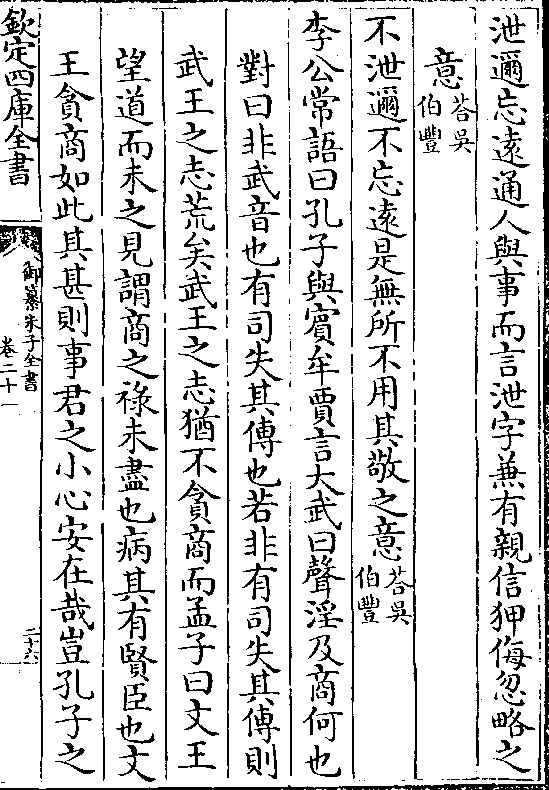 泄邇忘逺通人與事而言泄字兼有親信狎侮忽略之
意荅吳伯豐
不泄邇不忘逺是無所不用其敬之意荅吳伯豐
李公常語曰孔子與賓牟賈言大武曰聲淫及商何也
對曰非武音也有司失其傳也若非有司失其傳則
武王之志荒矣武王之志猶不貪商而孟子曰文王
望道而未之見謂商之祿未盡也病其有賢臣也文
王貪商如此其甚則事君之小心安在哉豈孔子之
欽定四庫全書
御纂朱子全書
卷二十一
二十六